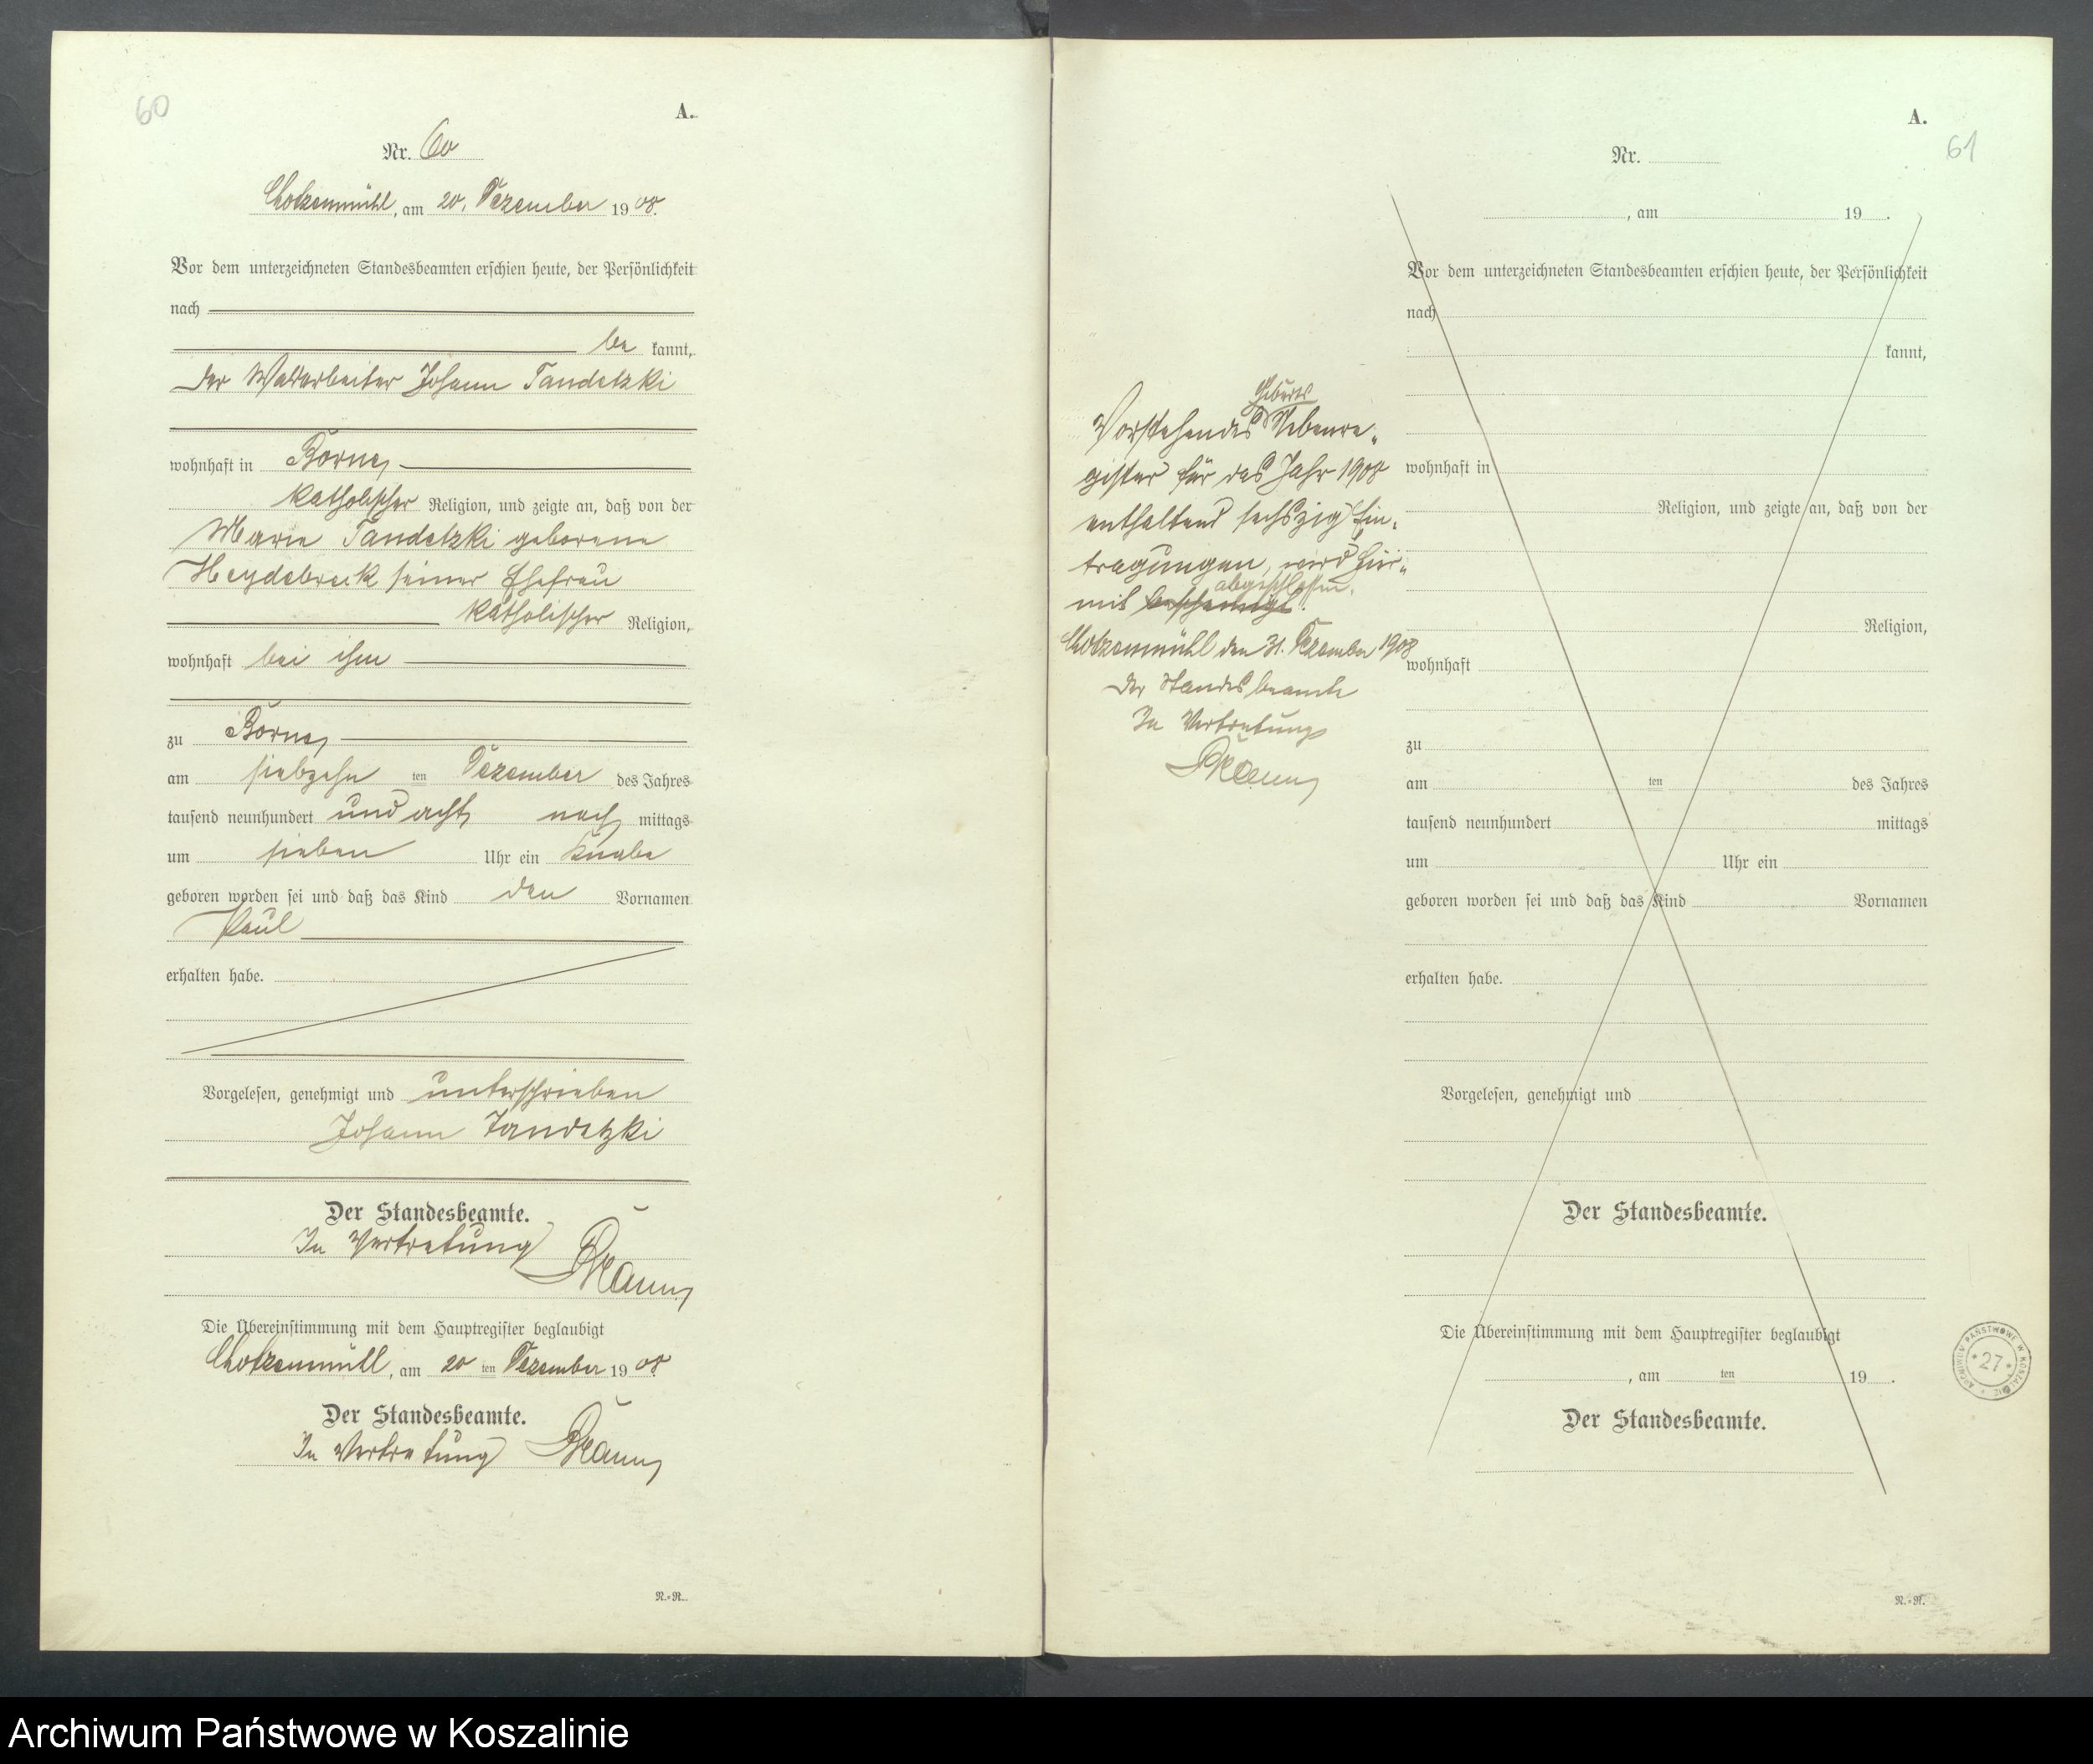 60
A.
Nr. 60
Chotzenmühl, am 20. Dezember 1908.
Vor dem unterzeichneten Standesbeamten erschien heute, der Persönlichkeit
nach
be kannt,
der Waldarbeiter Johann Tandetzki
wohnhaft in Borne,
katholischer Religion, und zeigte an, daß von der
Marie Tandetzki geborene
Heydebreck seiner Ehefrau
katholischer Religion,
wohnhaft bei ihm
zu Borne,
am siebzehn ten Dezember des Jahres
tausend neunhundert und acht nach mittags
um sieben Uhr ein Knabe
geboren worden sei und daß das Kind den Vornamen
Paul
erhalten habe.
Vorgelesen, genehmigt und unterschrieben
Johann Tandetzki
Der Standesbeamte.
In Vertretung
Die Übereinstimmung mit dem Hauptregister beglaubigt
Chotzenmühl, am 20 ten Dezember 1908.
Der Standesbeamte.
In Vertretung
N.-R.
A.
61
Nr.
, am 19 .
Vor dem unterzeichneten Standesbeamten erschien heute, der Persönlichkeit
nach
kannt,
Geburts
Vorstehendes Nebenre-
gister für das Jahr 1908
enthaltend sechszig Ein-
tragungen, wird hier-
abgeschlossen.
mit bescheinigt.
Chotzenmühl den 31. Dezember 1908
Der Standesbeamte
In Vertretung
wohnhaft in
Religion, und zeigte an, daß von der
Religion,
wohnhaft
zu
am ten des Jahres
tausend neunhundert mittags
um Uhr ein
geboren worden sei und daß das Kind Vornamen
erhalten habe.
Vorgelesen, genehmigt und
Der Standesbeamte.
Die Übereinstimmung mit dem Hauptregister beglaubigt
, am ten 19 .
Der Standesbeamte.
ARCHIWUM PAŃSTWOWE W KOSZALINIE
* 27 *
N.-R.
Archiwum Państwowe w Koszalinie